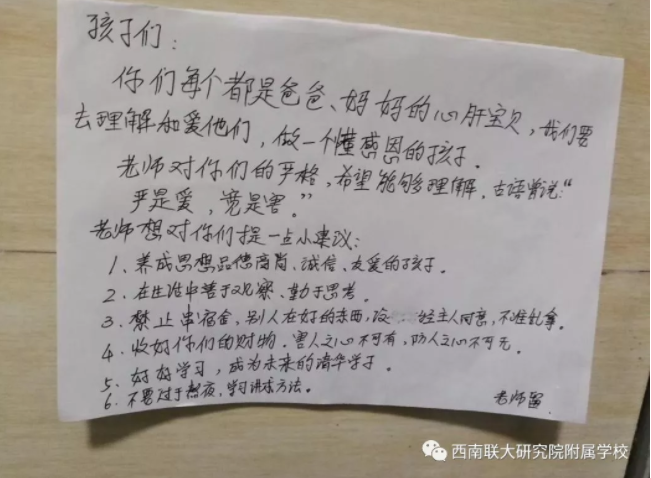 孩子们：
你们每个都是爸爸、妈妈的心肝宝贝，我们要
去理解和爱他们，做一个懂感恩的孩子。
老师对你们的严格，希望能够理解。古语曾说："
严是爱，宽是害。"
老师想对你们提一点小建议：
1、养成思想品德高尚、诚信、友爱的孩子。
2、在生活中善于观察、勤于思考。
3、禁止串宿舍，别人在好的东西，没经主人同意，不准乱拿。
4、收好你们的财物。害人之心不可有，防人之心不可无。
5、好好学习，成为未来的清华学子。
6、不要过于熬夜，学习讲求方法。
老师留
西南联大研究院附属学校